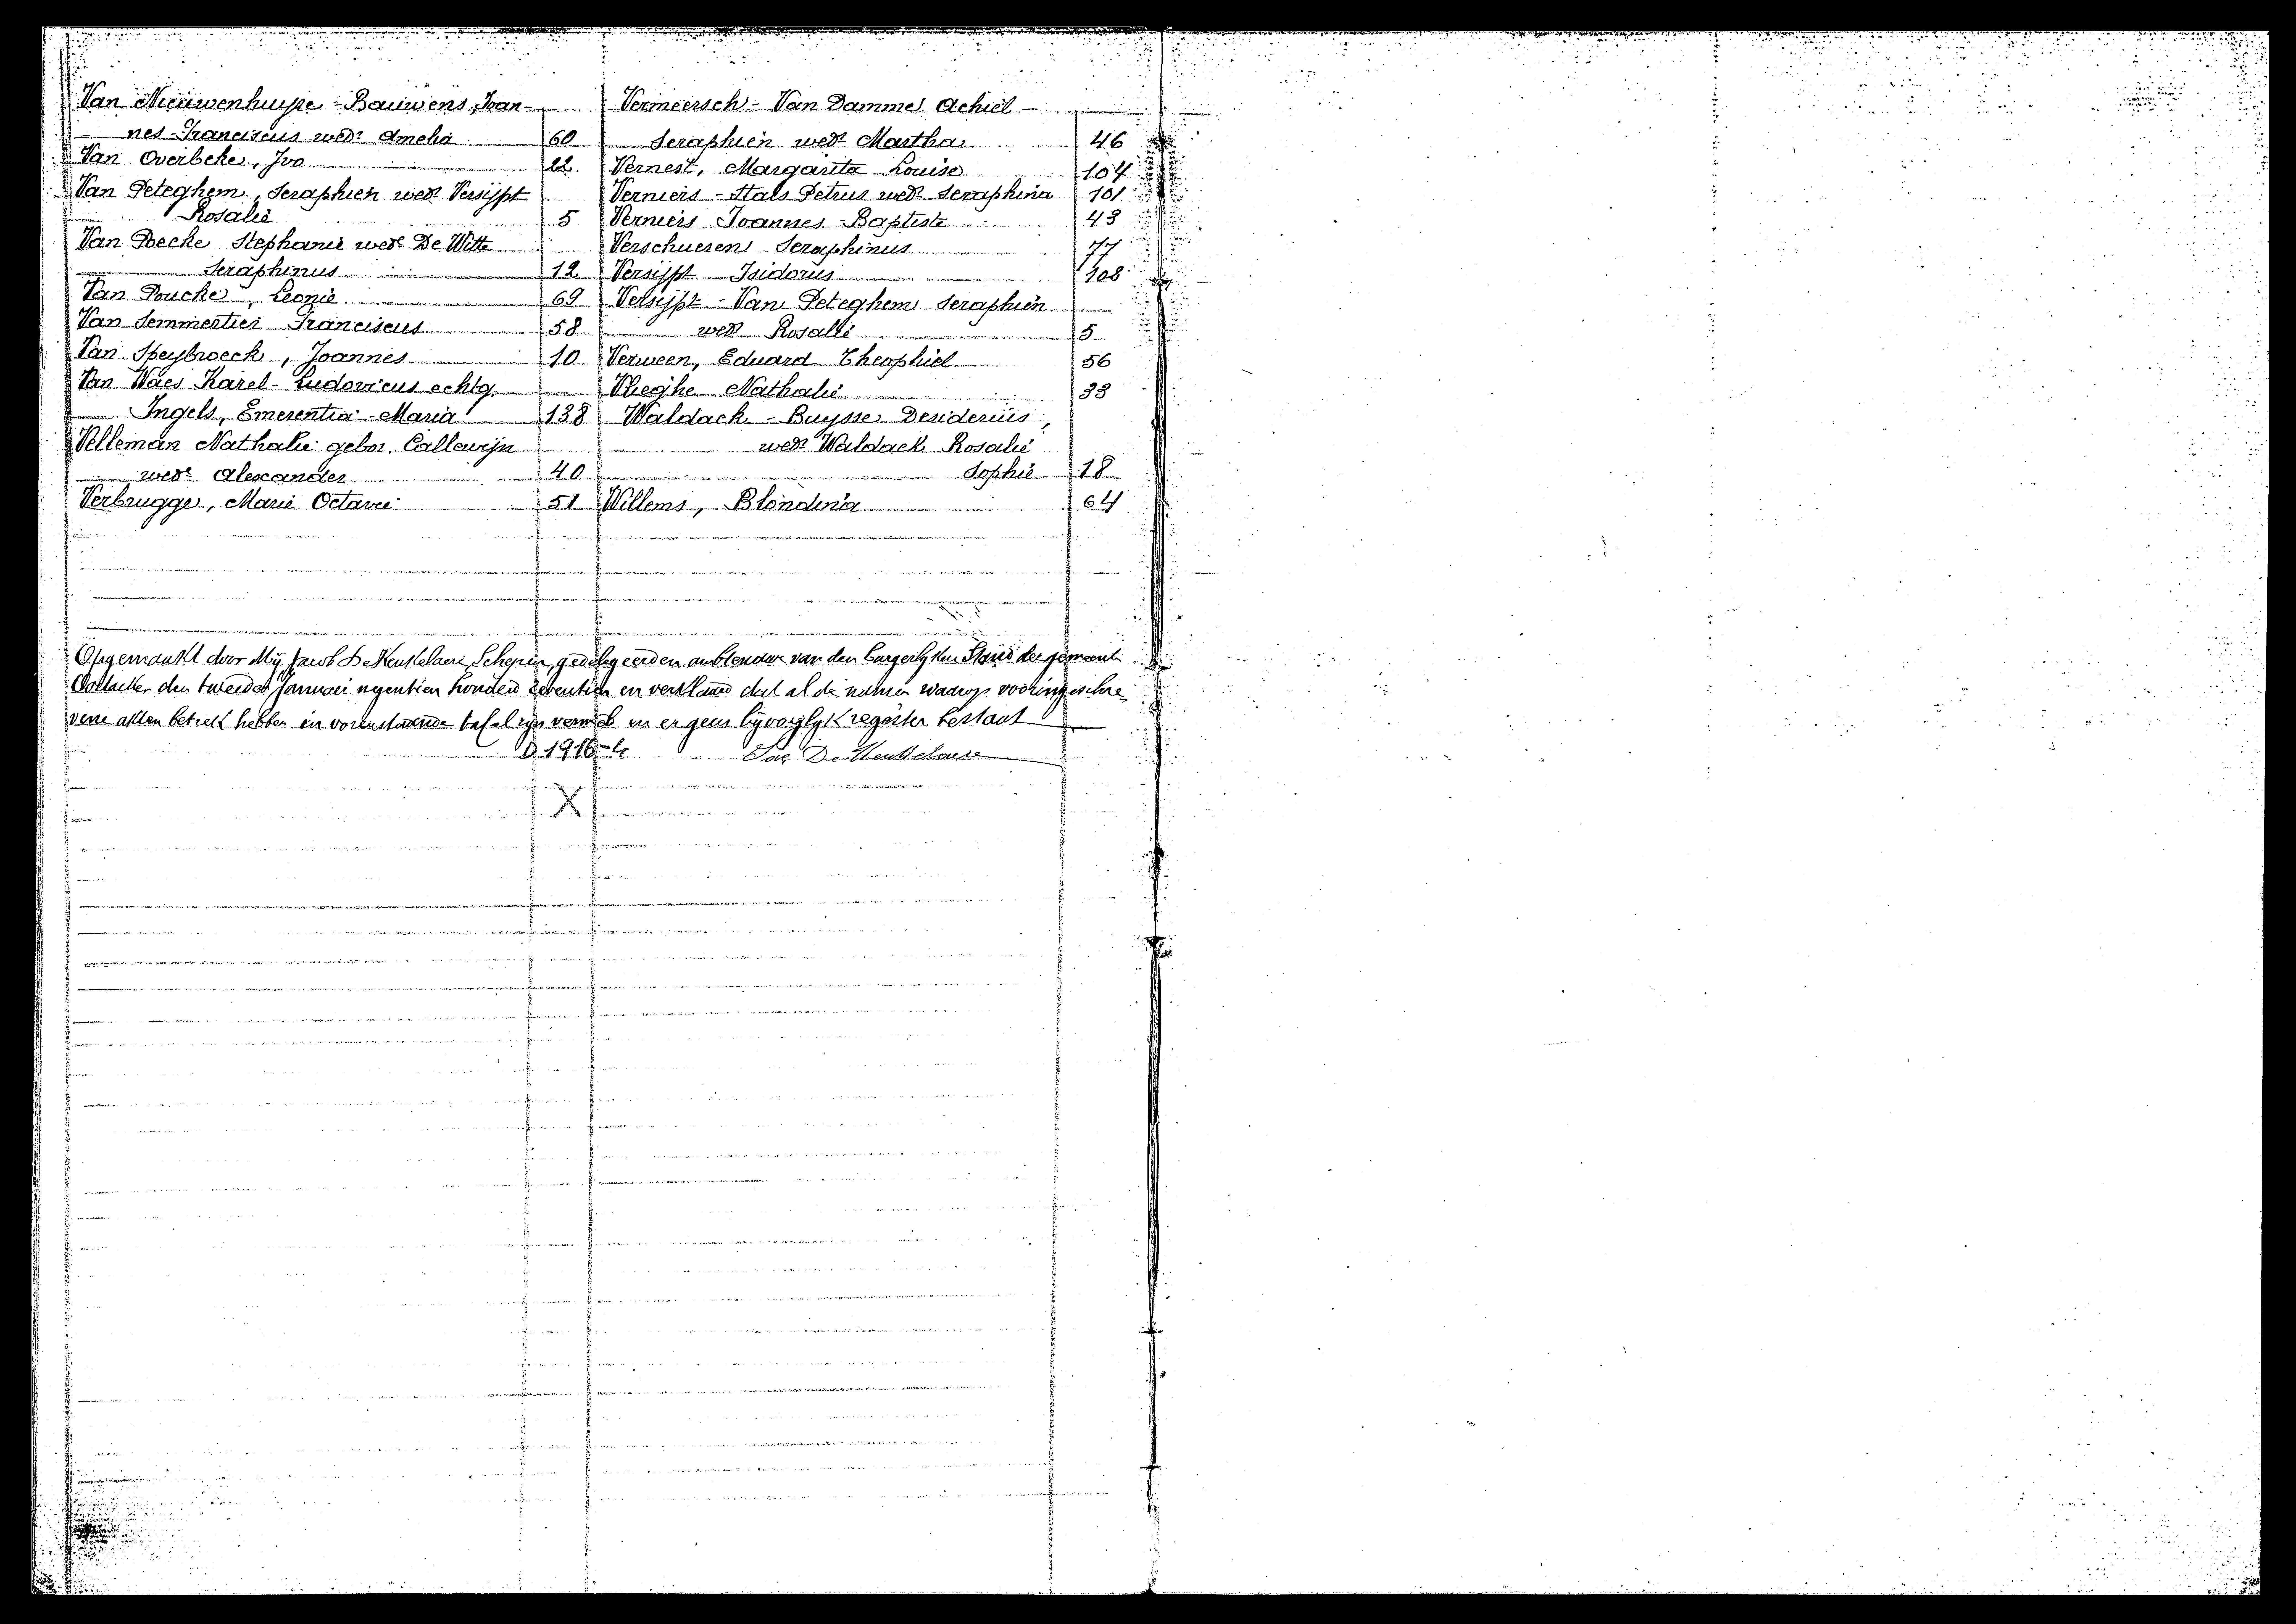 Van Nieuwenhuyse - Bauwens, Joan-
nes-Franciscus wedr Amelia 60
Van Overbeke, Ivo 22
Van Peteghem, Seraphien wedr Versijpt
Rosalie 5
Van Poecke Stephanie wede De Witte
Seraphinus 12
Van Poucke, Leonie 69
Van Semmertier Franciscus 58
Van Speybroeck, Joannes 10
Van Waes Karel-Ludovicus echtg.
Ingels, Emerentia-Maria 138
Velleman Nathalie gebor. Callewijn
wede Alexander 40
Verbrugge, Marie Octavie 51
Vermeersch - Van Damme Achiel -
Seraphien wedr Martha 46
Vernest, Margarita Louise 104
Verniers - Stals Petrus wedr Seraphina 101
Verniers Joannes-Baptiste 43
Verschueren Seraphinus 77
Versijpt Isidorus 108
Versijpt - Van Peteghem Seraphien
wedr Rosalie 5
Verween, Eduard Theophiel 56
Vlieghe Nathalie 33
Waldack - Buysse Desiderius,
wedr Waldack Rosalie
Sophie 18
Willems, Blondina 64
Opgemaakt door Mij Jacob De Keukelaere, Schepen, gedelegeerden ambtenaar van den burgerlyken Stand der gemeente
Oostacker den tweeden Januari negentien honderd zeventien en verklaard dat al de namen waarop vooringeschre
vene akten betrek hebben in vorenstaande tafel zyn vermeld en er geen byvoeglyk register bestaat
D. 1916-4 Jac De Keukelaere
X